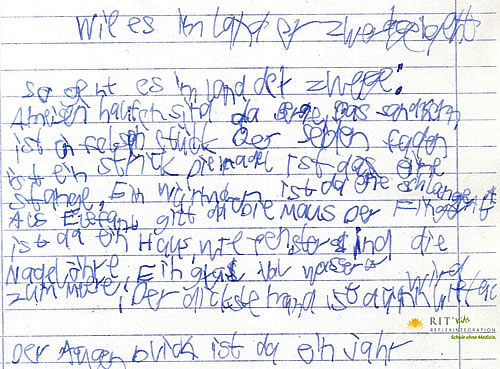 Wie es im land er zwerge geht
so geht es im land der zwege:
Ameisen haufen sind da erge, das sandkorn
ist ein felsen stück Der seiden faden
ist ein strick die nadel ist da eine
stange, Ein würmlein ist da eine schlange
Als Elefant gilt da die Maus Der Fingerhut
ist da ein Haus, wie fenster sind die
Nadelöhre, Ein glas vol wasser wird
zum meere, Der dickste mann ist dünn
Der Augen blick ist da ein jahr
RIT
REFLEXINTEGRATION
Schule ohne Medizin.